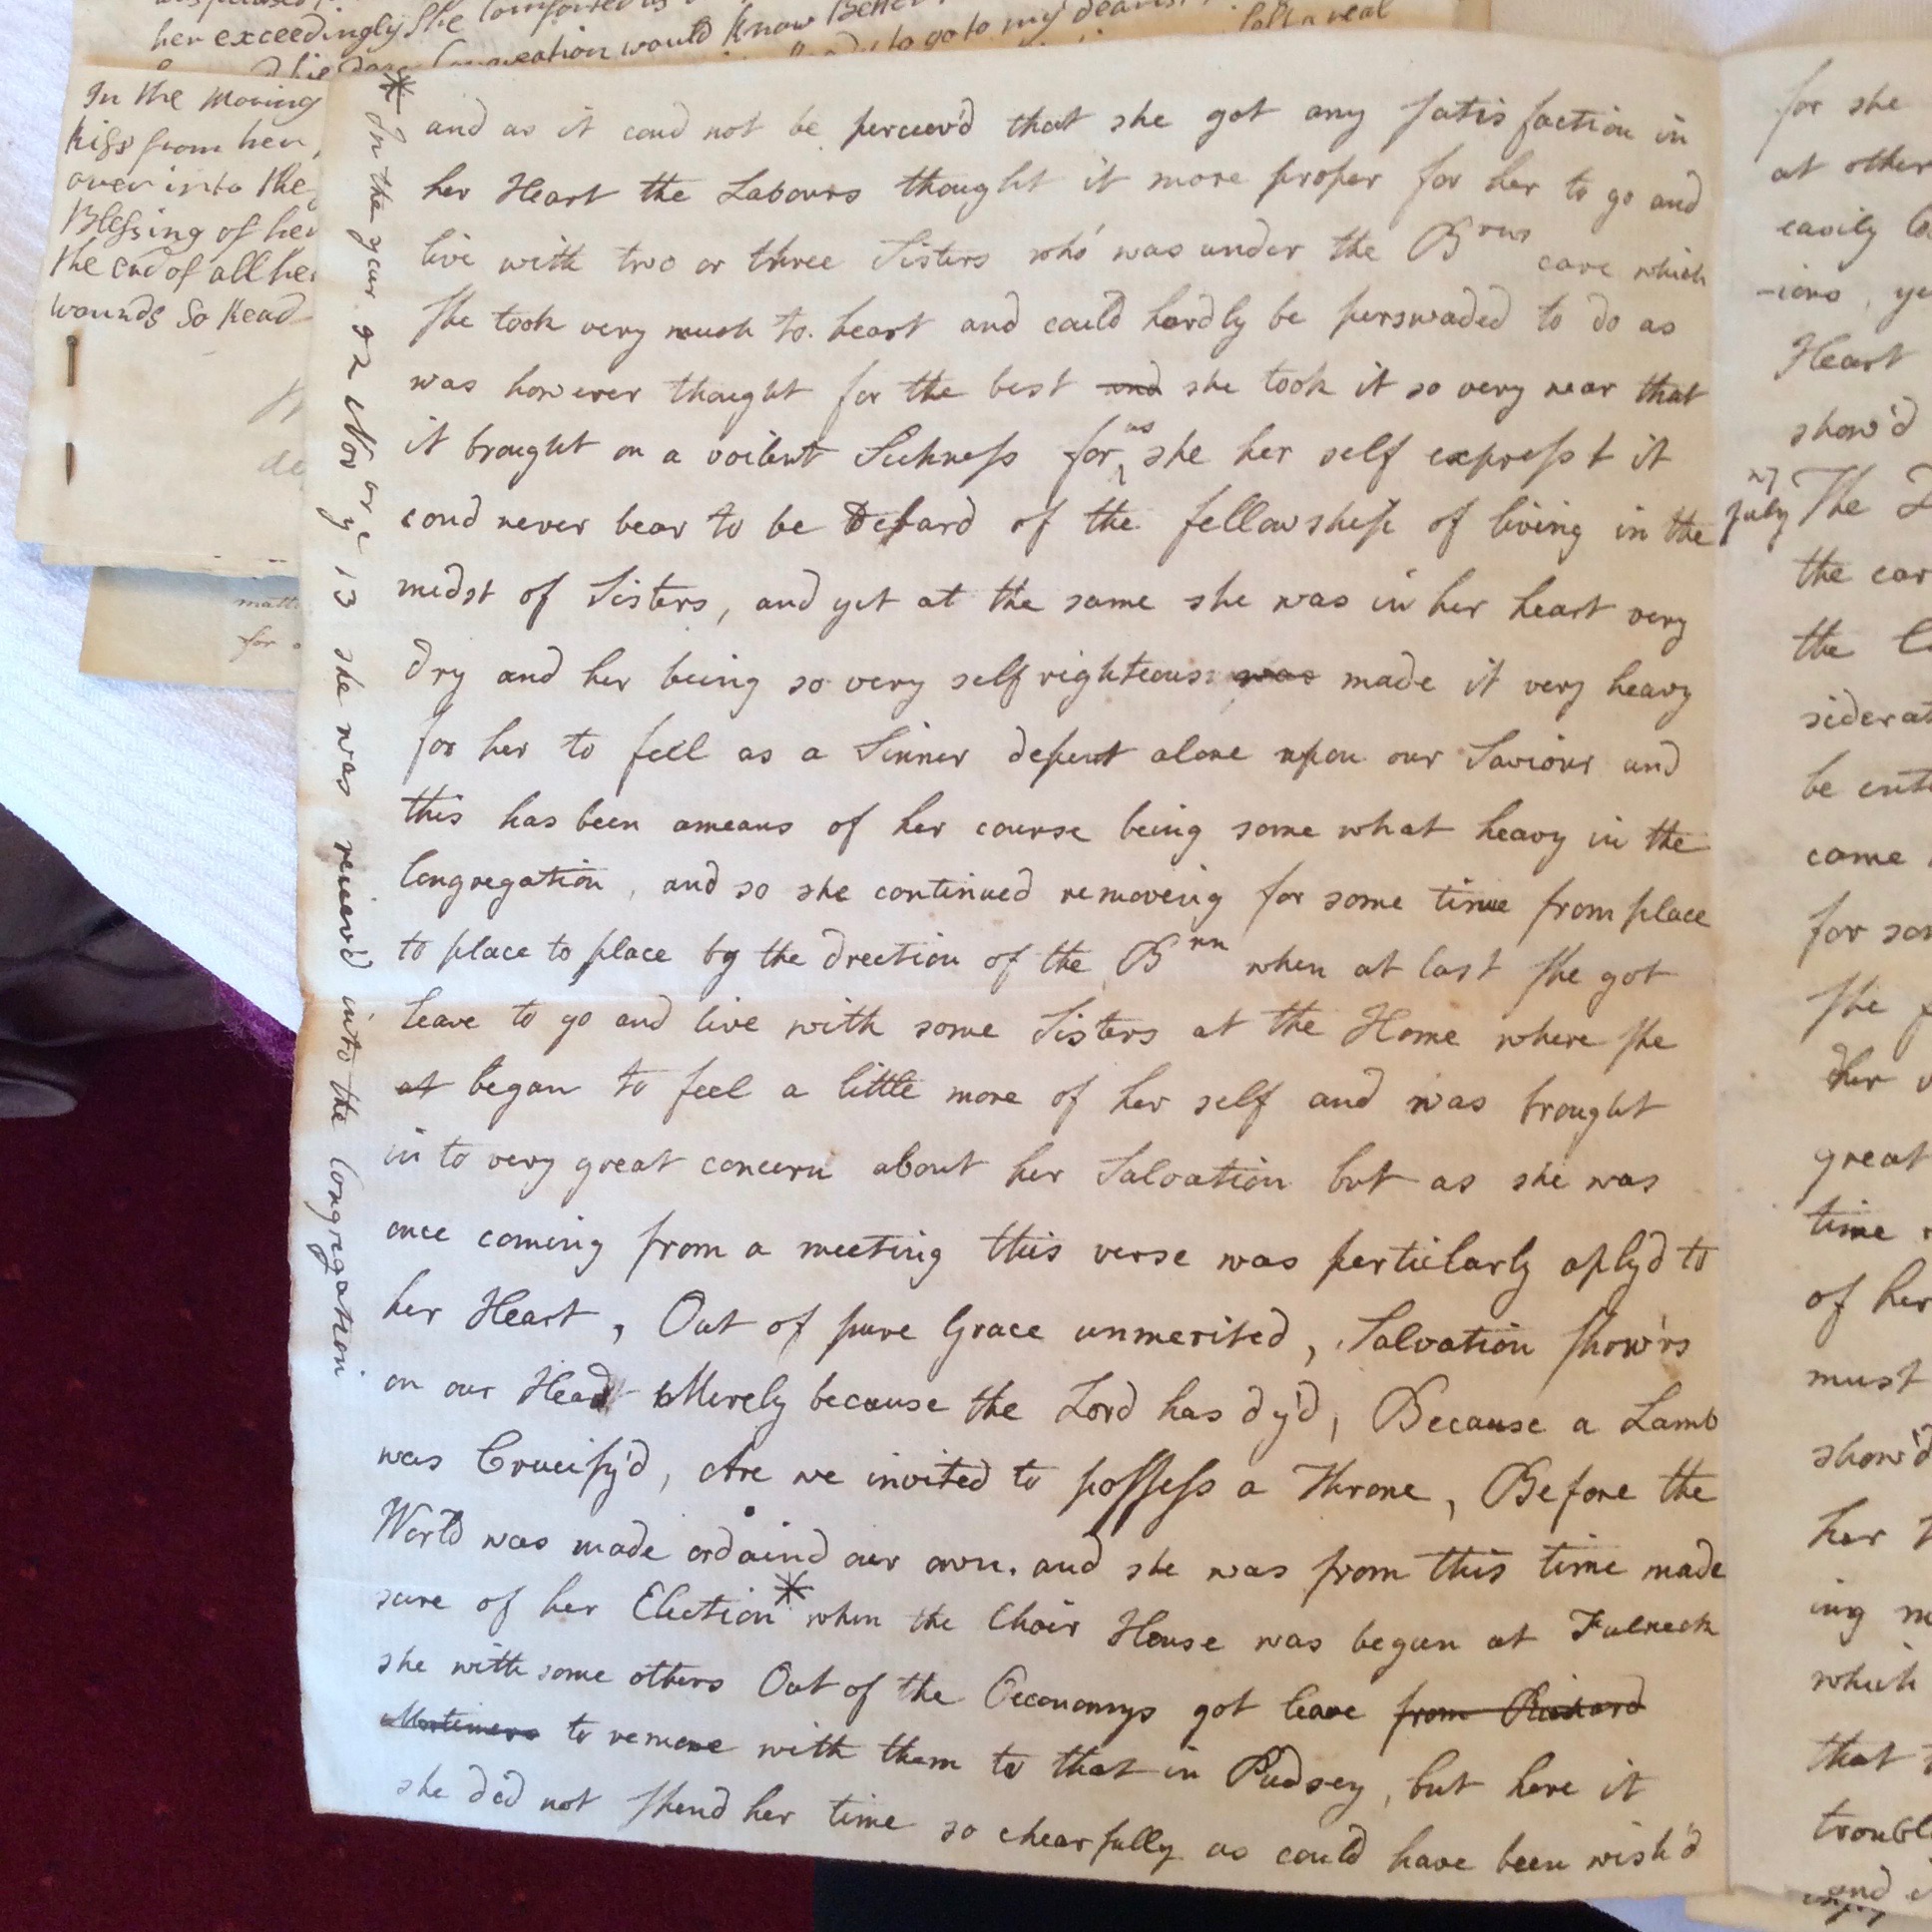 her exceedingly she comforted us
would know Better
to go to my dearest
In the Moving
kiss from her,
over into the
Blessing of her
the end of all her
wounds so Read
matt
for
* In the year 92 Nov or ye 13 she was reciev'd into the Congregation.
and as it coud not be perceev'd that she got any satis faction in
her Heart the Labours thought it more proper for her to go and
live with two or three Sisters who was under the Brns care which
she took very much to heart and could hardly be perswaded to do as
was however thought for the best and she took it so very near that
it brought on a voilent Sickness for as she her self express t it
coud never bear to be Debard of the fellowship of living in the
midst of Sisters, and yet at the same she was in her heart very
dry and her being so very self righteous was made it very heavy
for her to feel as a Sinner depent alone upon our Saviour and
this has been ameans of her course being some what heavy in the
Congregation, and so she continued removeing for some time from place
to place to place by the drection of the Brn when at last she got
leave to go and live with some Sisters at the Home where she
at began to feel a little more of her self and was brought
in to very great concern about her Salvation but as she was
once coming from a meeting this verse was perticlarly aplyd to
her Heart, Out of pure Grace unmerited, Salvation show'rs
on our Head Merely because the Lord has dy'd, Because a Lamb
was Crucify'd, Are we invited to possess a Throne, Before the
World was made ordaind our own. and she was from this time made
sure of her Election * when the Choir House was begun at Fulneck
she with some others Out of the Oeconomys got leave from Richard
Mortimers to remove with them to that in Pudsey, but here it
she did not spend her time so chearfully as could have been wish'd
for she
at other
easily
-ions, ye
Heart
show'd
July The
the car
the
siderat
be ente
came
for som
she
her
great
time
of her
must
show'd
her
ing
which
that
troubl
and